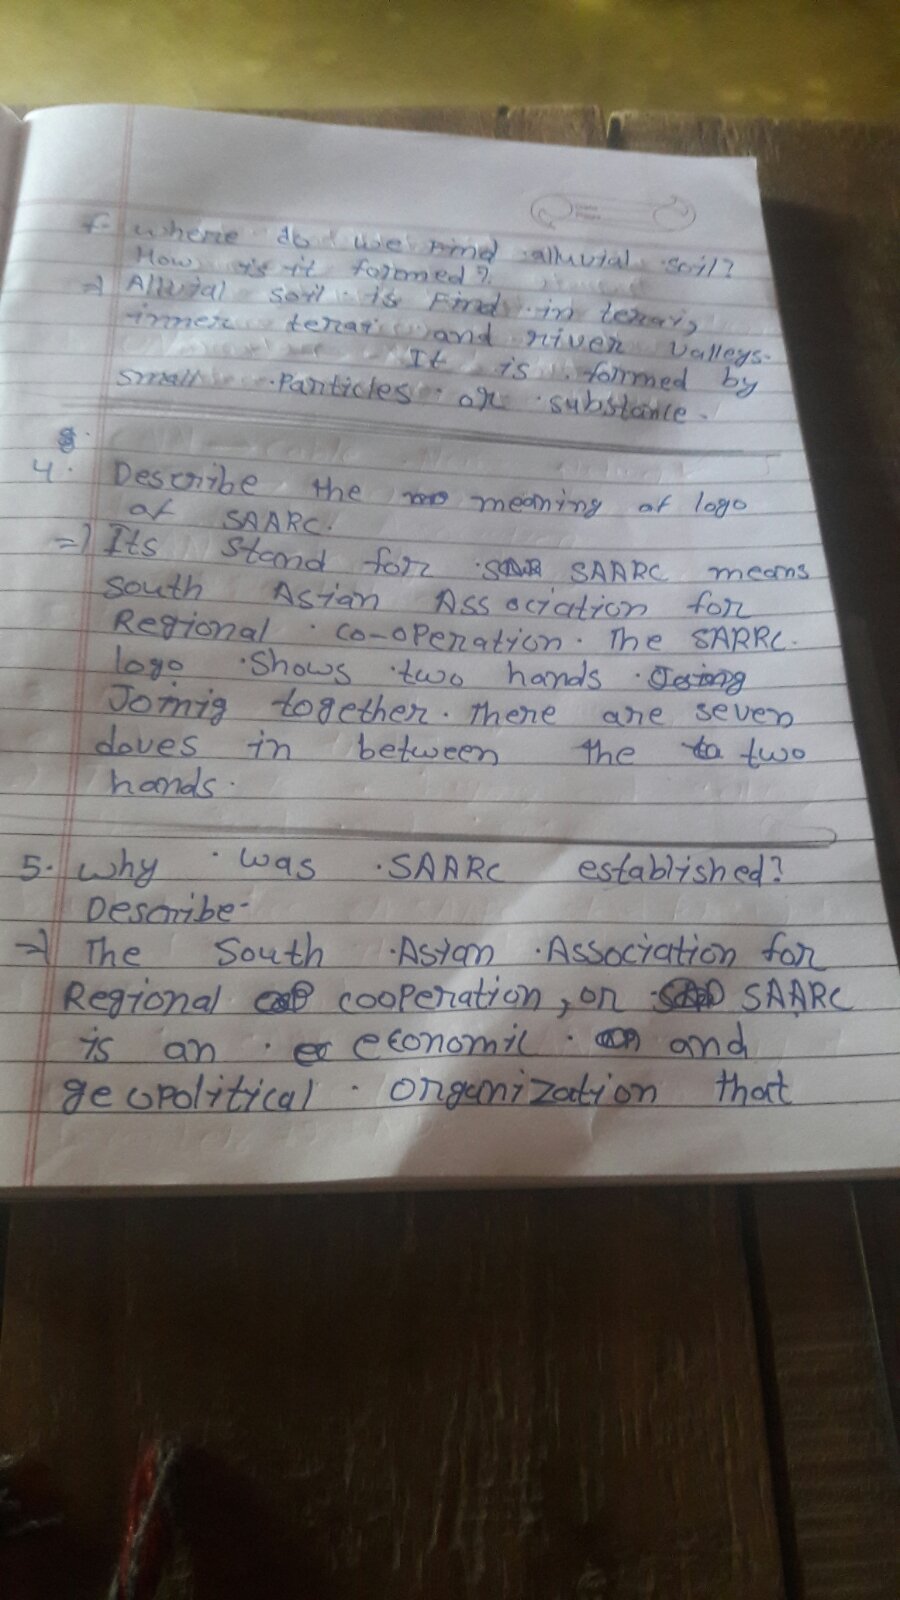 f- where do we Find alluvial soil?
How is it formed?
=> Alluvial soil is Find in terai,
inner terai and river valleys.
It is formed by
small Particles or substance.
4. Describe the meaning of logo
of SAARC.
=> Its Stand for SAARC means
South Asian Association for
Regional co-operation. The SARRC.
logo Shows two hands
Joinig together. There are seven
doves in between the two
hands.
5. Why was SAARC established?
Describe-
=> The South Asian Association for
Regional cooperation, or SAARC
is an economic and
geopolitical organization that